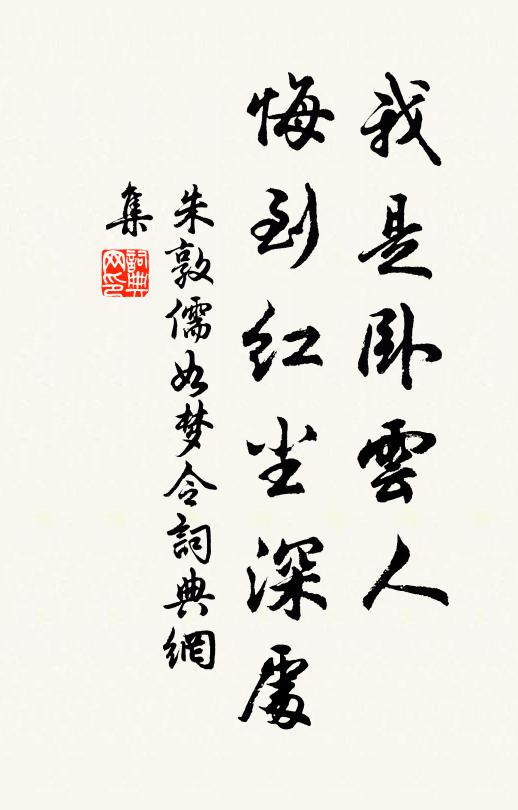 我是卧雲人
悔到红尘深處
朱敦儒如梦令詞典網
集
詞典网印